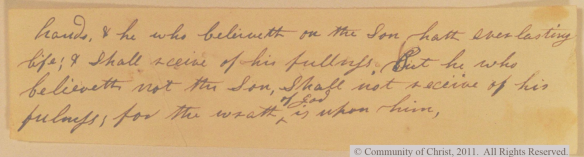 hands, & he who believeth on the Son hath everlasting
life; & shall receive of his fullness. But he who
believeth not the Son, shall not receive of his
fulness; for the wrath ^of God is upon him,
© Community of Christ, 2011. All Rights Reserved.